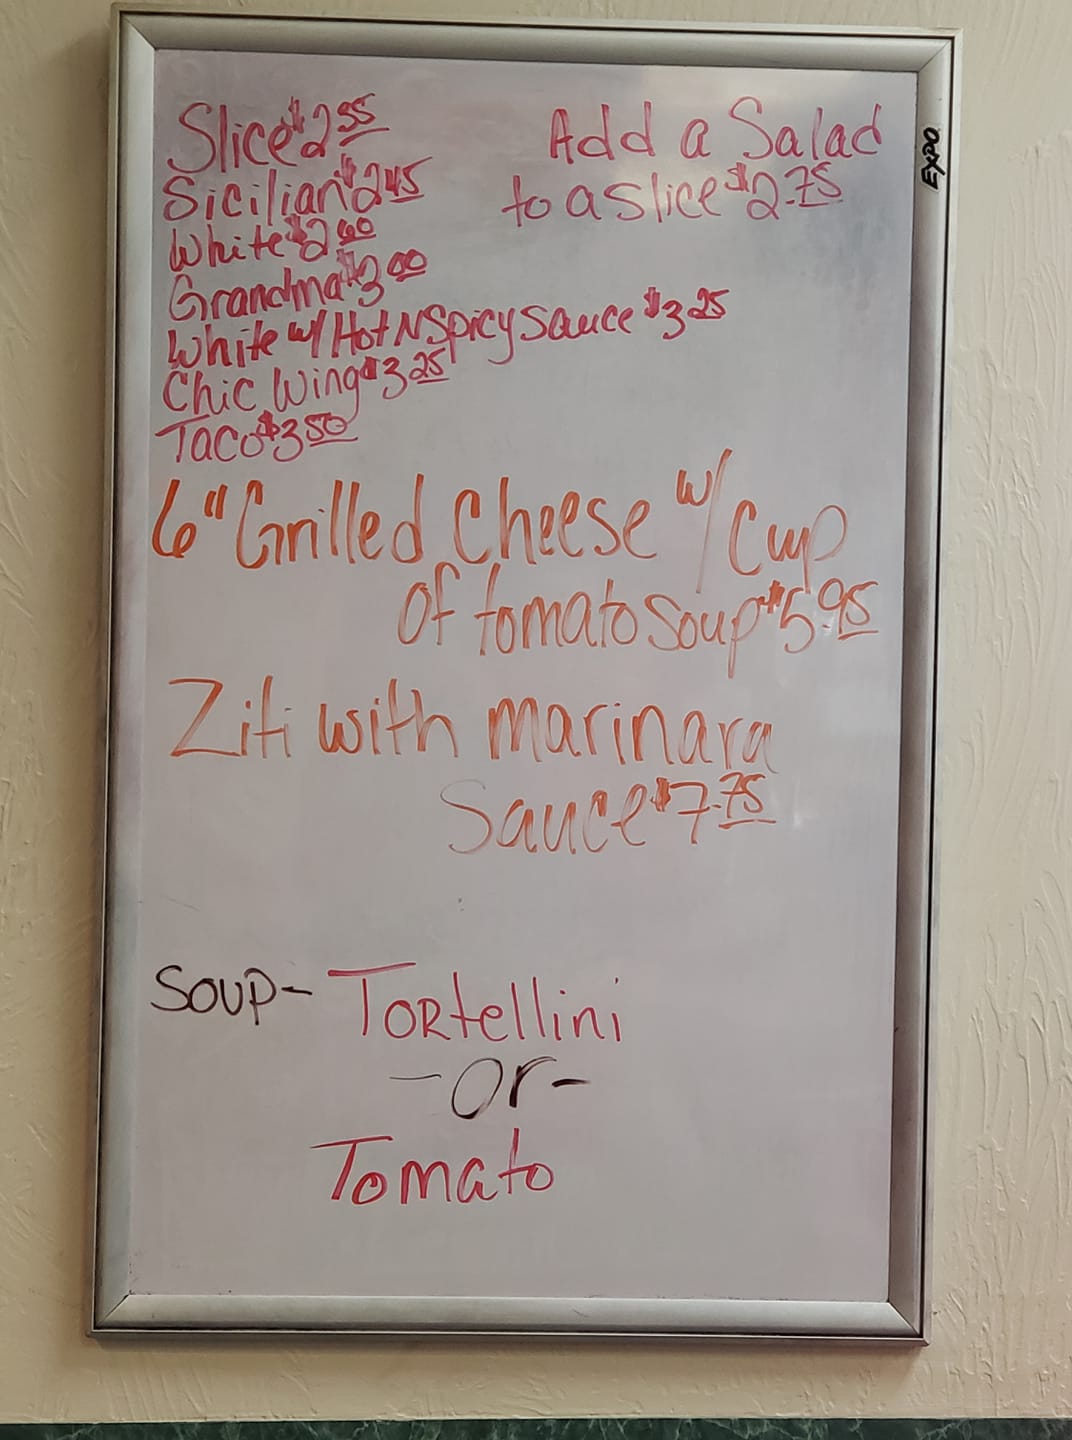 Slice $2.55
Sicilian $2.45
White $2.60
Grandma $3.00
White w/ Hot N Spicy Sauce $3.25
Chic Wing $3.25
Taco $3.50
Add a Salad
to a slice $2.75
6" Grilled Cheese w/ Cup
of tomato soup $5.95
Ziti with marinara
Sauce $7.75
Soup- Tortellini
-or-
Tomato
EXPO